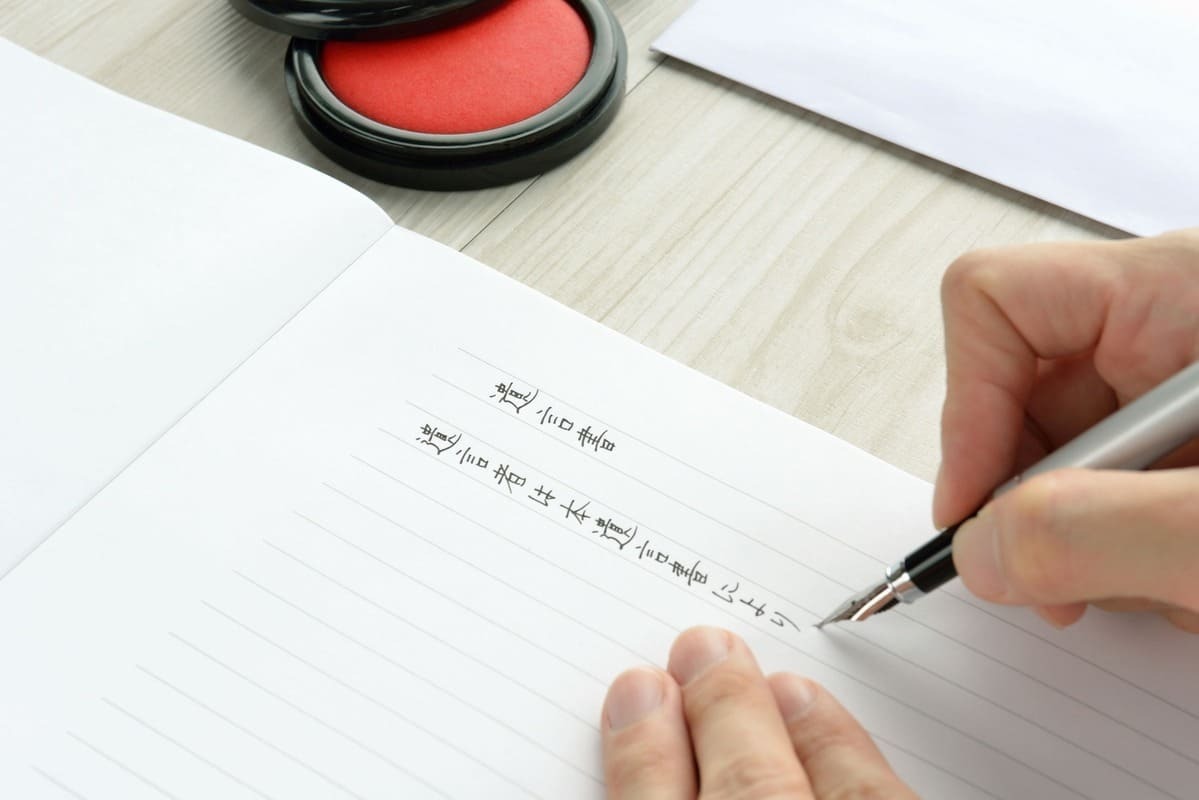 遺言書
遺言者は本遺言書により